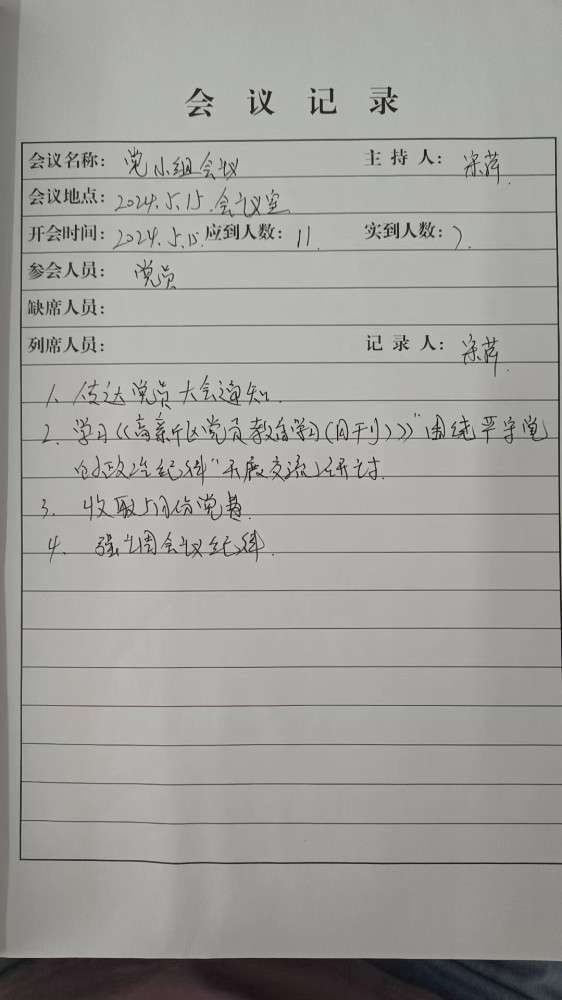 会议记录
会议名称：党小组会议 主持人：
会议地点：2024.5.15.会议室
开会时间：2024.5.15.应到人数：11. 实到人数：7.
参会人员：党员
缺席人员：
列席人员： 记录人：
1、传达党员大会通知.
2、学习《高新区党员教育学习(月刊)》"围绕严守党
的政治纪律"开展交流研讨.
3、收取5月份党费.
4、强调会议纪律.